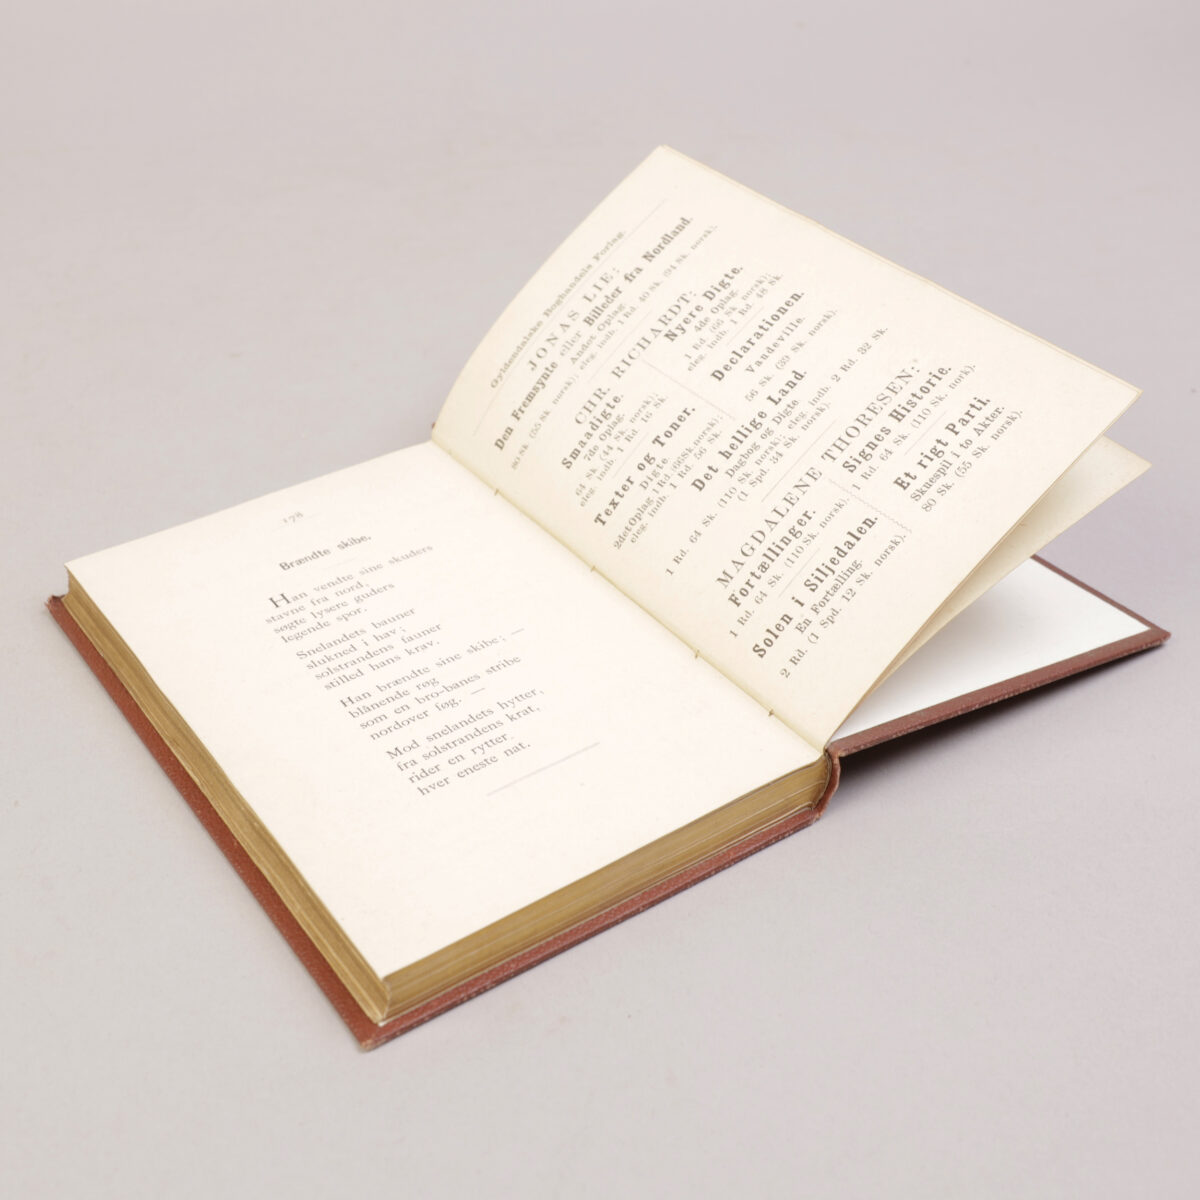 178
Brændte skibe.
Han vendte sine skuder
stavne fra nord,
søgte lysere guders
legende spor.
Snelandets bauner
slukned i hav;
solstrandens fauner
stilled hans krav.
Han brændte sine skibe; —
blånende røg
som en bro-banes stribe
nordover føg. —
Mod snelandets hytter,
fra solstrandens krat,
rider en rytter
hver eneste nat.
Gyldendalske Boghandels Forlag.
JONAS LIE:
Den Fremsynte eller Billeder fra Nordland.
Andet Oplag.
80 Sk. (55 Sk. norsk); eleg. indb. 1 Rd. 40 Sk. (94 Sk. norsk).
CHR. RICHARDT:
Smaadigte.
7de Oplag.
64 Sk. (44 Sk. norsk);
eleg. indb. 1 Rd. 16 Sk.
Texter og Toner.
Digte.
2det Oplag. 1 Rd. (66 Sk. norsk);
eleg. indb. 1 Rd. 56 Sk.
Nyere Digte.
4de Oplag.
1 Rd. (66 Sk. norsk);
eleg. indb. 1 Rd. 48 Sk.
Declarationen.
Vaudeville.
56 Sk. (39 Sk. norsk).
Det hellige Land.
Dagbog og Digte.
1 Rd. 64 Sk. (110 Sk. norsk); eleg. indb. 2 Rd. 32 Sk.
(1 Spd. 34 Sk. norsk).
MAGDALENE THORESEN:
Fortællinger.
1 Rd. 64 Sk. (110 Sk. norsk).
Solen i Siljedalen.
En Fortælling.
2 Rd. (1 Spd. 12 Sk. norsk).
Signes Historie.
1 Rd. 64 Sk. (110 Sk. norsk).
Et rigt Parti.
Skuespil i to Akter.
80 Sk. (55 Sk. norsk).